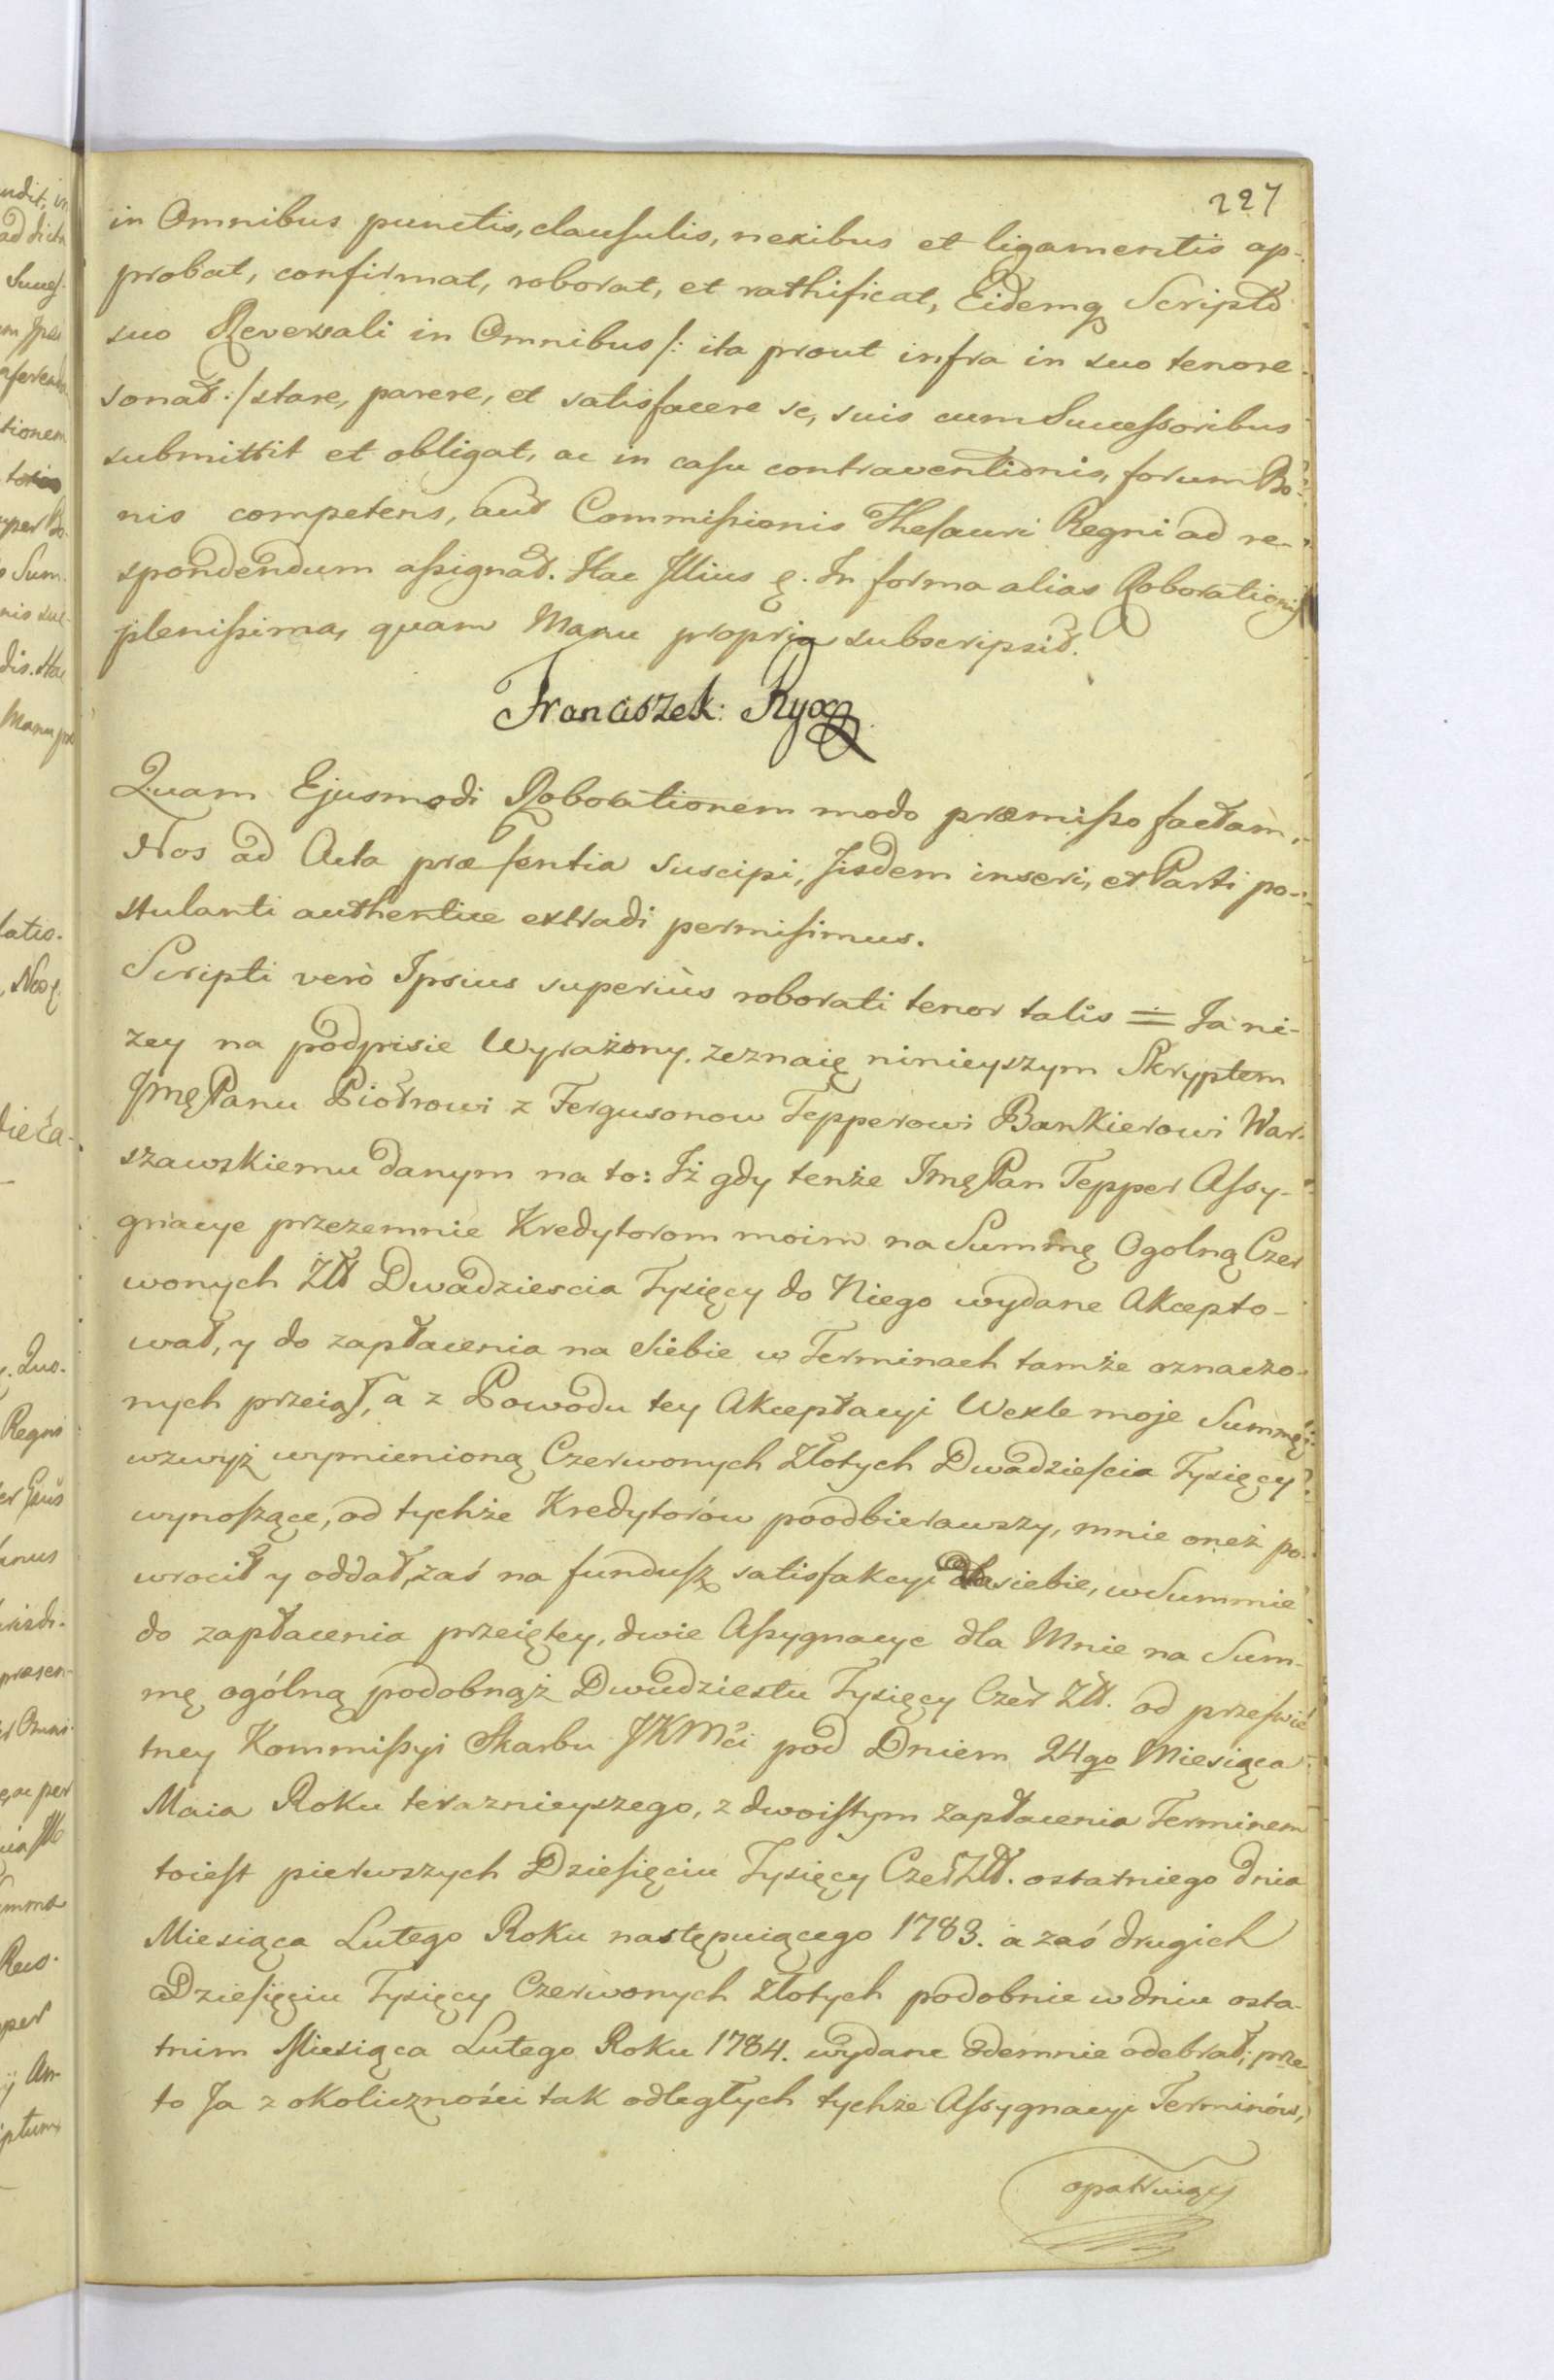 227
in Omnibus punctis, clausulis, nexibus et ligamentis ap-
probat, confirmat, roborat, et rathificat, Eidemq Scripto
suo Reversali in Omnibus /: ita prout infra in suo tenore
sonat :/ stare, parere, et satisfacere se, suis cum Sucessoribus
submittit et obligat, ac in casu contraventionis, forum Bo-
nis competens, aut Commissionis Thesauri Regni ad re-
spondendum assignat. Hac Illius ę. In forma alias Roborationis
plenissima, quam Manu propria subscripsit.
Franciszek Ryx
Quam Ejusmodi Roborationem modo præmisso factam,
Nos ad Acta præsentia suscipi, Iisdem inseri, et Parti po-
stulanti authentice extradi permisimus.
Scripti verò Ipsius superiùs roborati tenor talis = Ja ni-
zey na podpisie Wyrażony. zeznaię ninieyszym Skryptem
JmęPanu Piotrowi z Fergusonow Tepperowi Bankierowi War-
szawskiemu danym na to: Iż gdy tenże JmęPan Tepper Assy-
gnacye przezemnie Kredytorom moim na Summę Ogolną Czer
wonych Złł Dwadziescia Tysięcy do Niego wydane Akcepto-
wał, y do zapłacenia na Siebie w Terminach tamże oznaczo-
nych przeiął, a z Powodu tey Akceptacyi Wexle moje Summę
wzwyż wymienioną Czerwonych Złotych Dwadzieścia Tysięcy
wynoszące, od tychże Kredytorów poodbierawszy, mnie oneż po-
wrocił y oddał, zaś na fundusz satisfakcyi dla siebie, w Summie
do zapłacenia przeiętey, dwie Assygnacye dla Mnie na Sum-
mę ogólną podobnąż Dwudziestu Tysięcy Czer Złł. od przeswie
tney Kommissyi Skarbu JKMci pod Dniem 24go Miesiąca
Maia Roku terazniejszego, z dwoistym zapłacenia Terminem
toiest pierwszych Dziesięciu Tysięcy Czer Złł. ostatniego dnia
Miesiąca Lutego Roku następuiącego 1783. a zaś drugich
Dziesięciu Tysięcy Czerwonych Złotych podobnie w dniu osta-
tnim Miesiąca Lutego Roku 1784. wydane odemnie odebrał; prze
to Ja z okoliczności tak odległych tychże Assygnacyi Terminów,
opatruiący